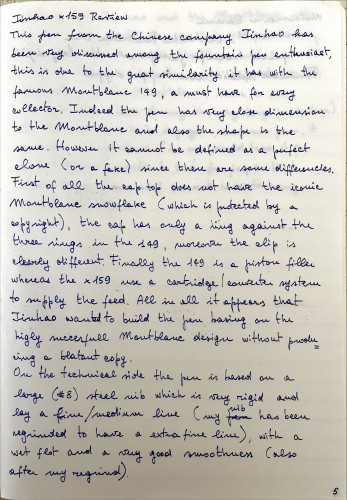 Jinhao x159 Review
This pen from the Chinese company Jinhao has
been very discussed among the fountain pen enthusiast,
this is due to the great similarity it has with the
famous Montblanc 149, a must have for every
collector. Indeed the pen has very close dimension
to the Montblanc and also the shape is the
same. However it cannot be defined as a perfect
clone (or a fake) since there are some differencies.
First of all the cap top does not have the iconic
Montblanc snowflake (which is protected by a
copyright), the cap has only a ring against the
three rings in the 149, moreover the clip is
clearly different. Finally the 149 is a piston filler
whereas the x159 use a cartridge/converter system
to supply the feed. All in all it appears that
Jinhao wanted to build the pen basing on the
higly successfull Montblanc design without produ=
cing a blatant copy.
On the technical side the pen is based on a
large (#8) steel nib which is very rigid and
lay a fine/medium line (my nib has been
regrinded to have a extra fine line), with a
wet flot and a very good smoothness (also
after my regrind).
5